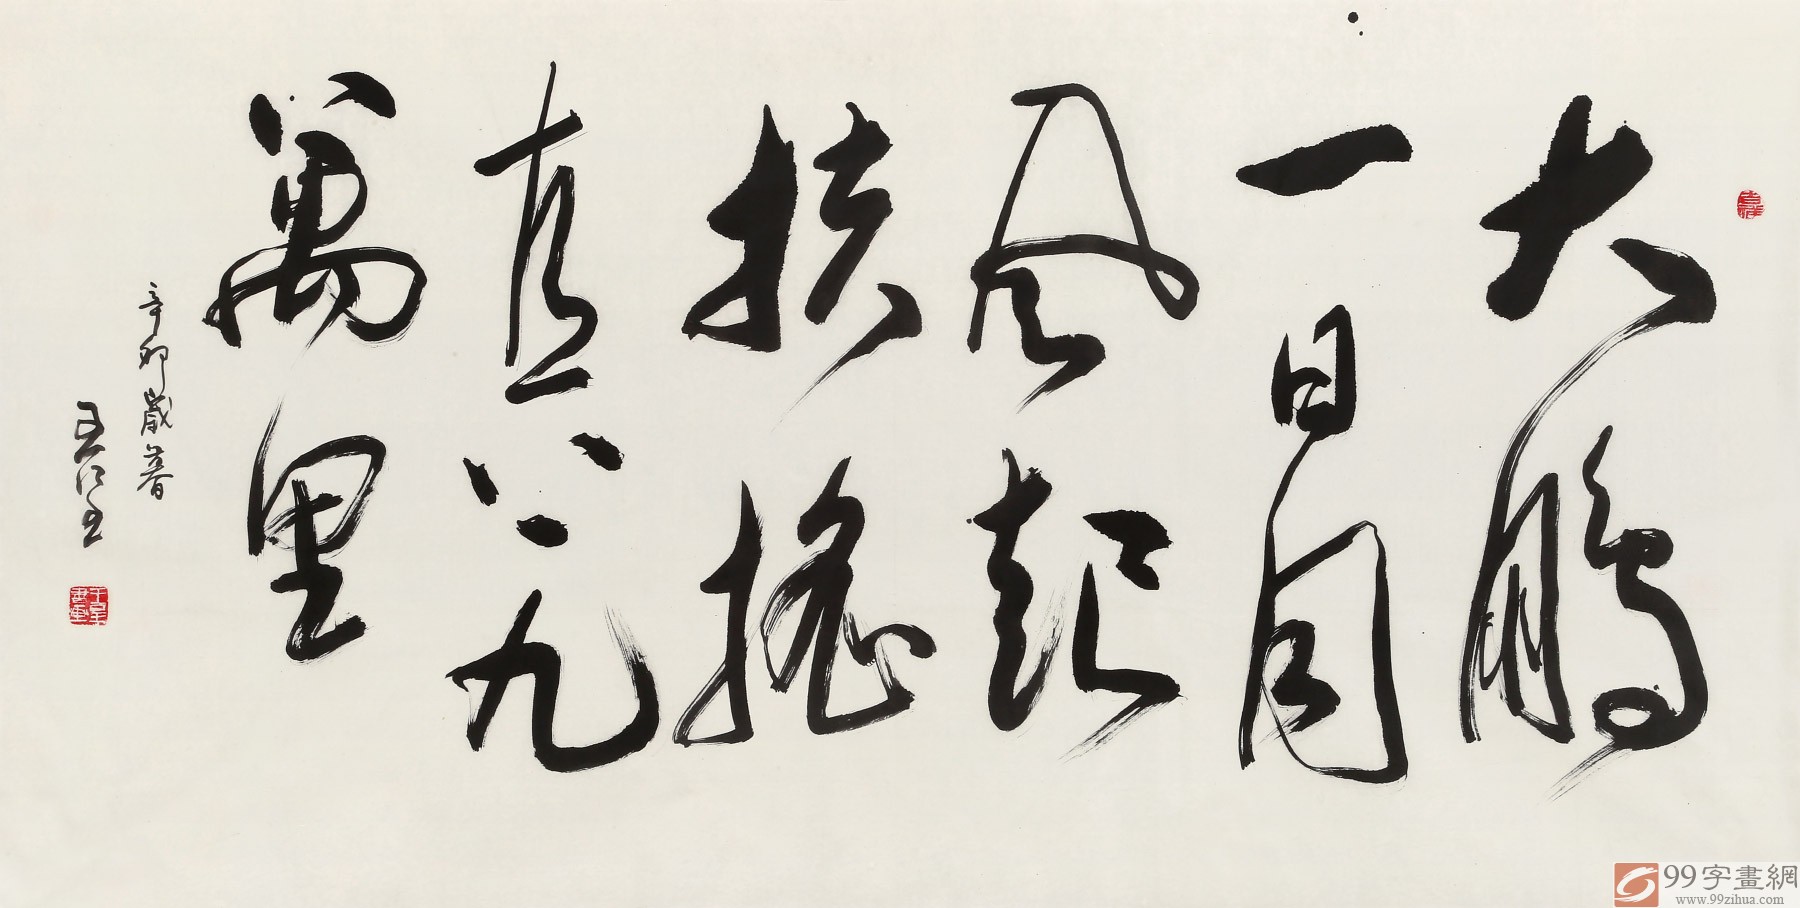 大鵬
一日同
風起
扶搖
直上九
萬里
辛卯歲暮
99字畫網
www.99zihua.com